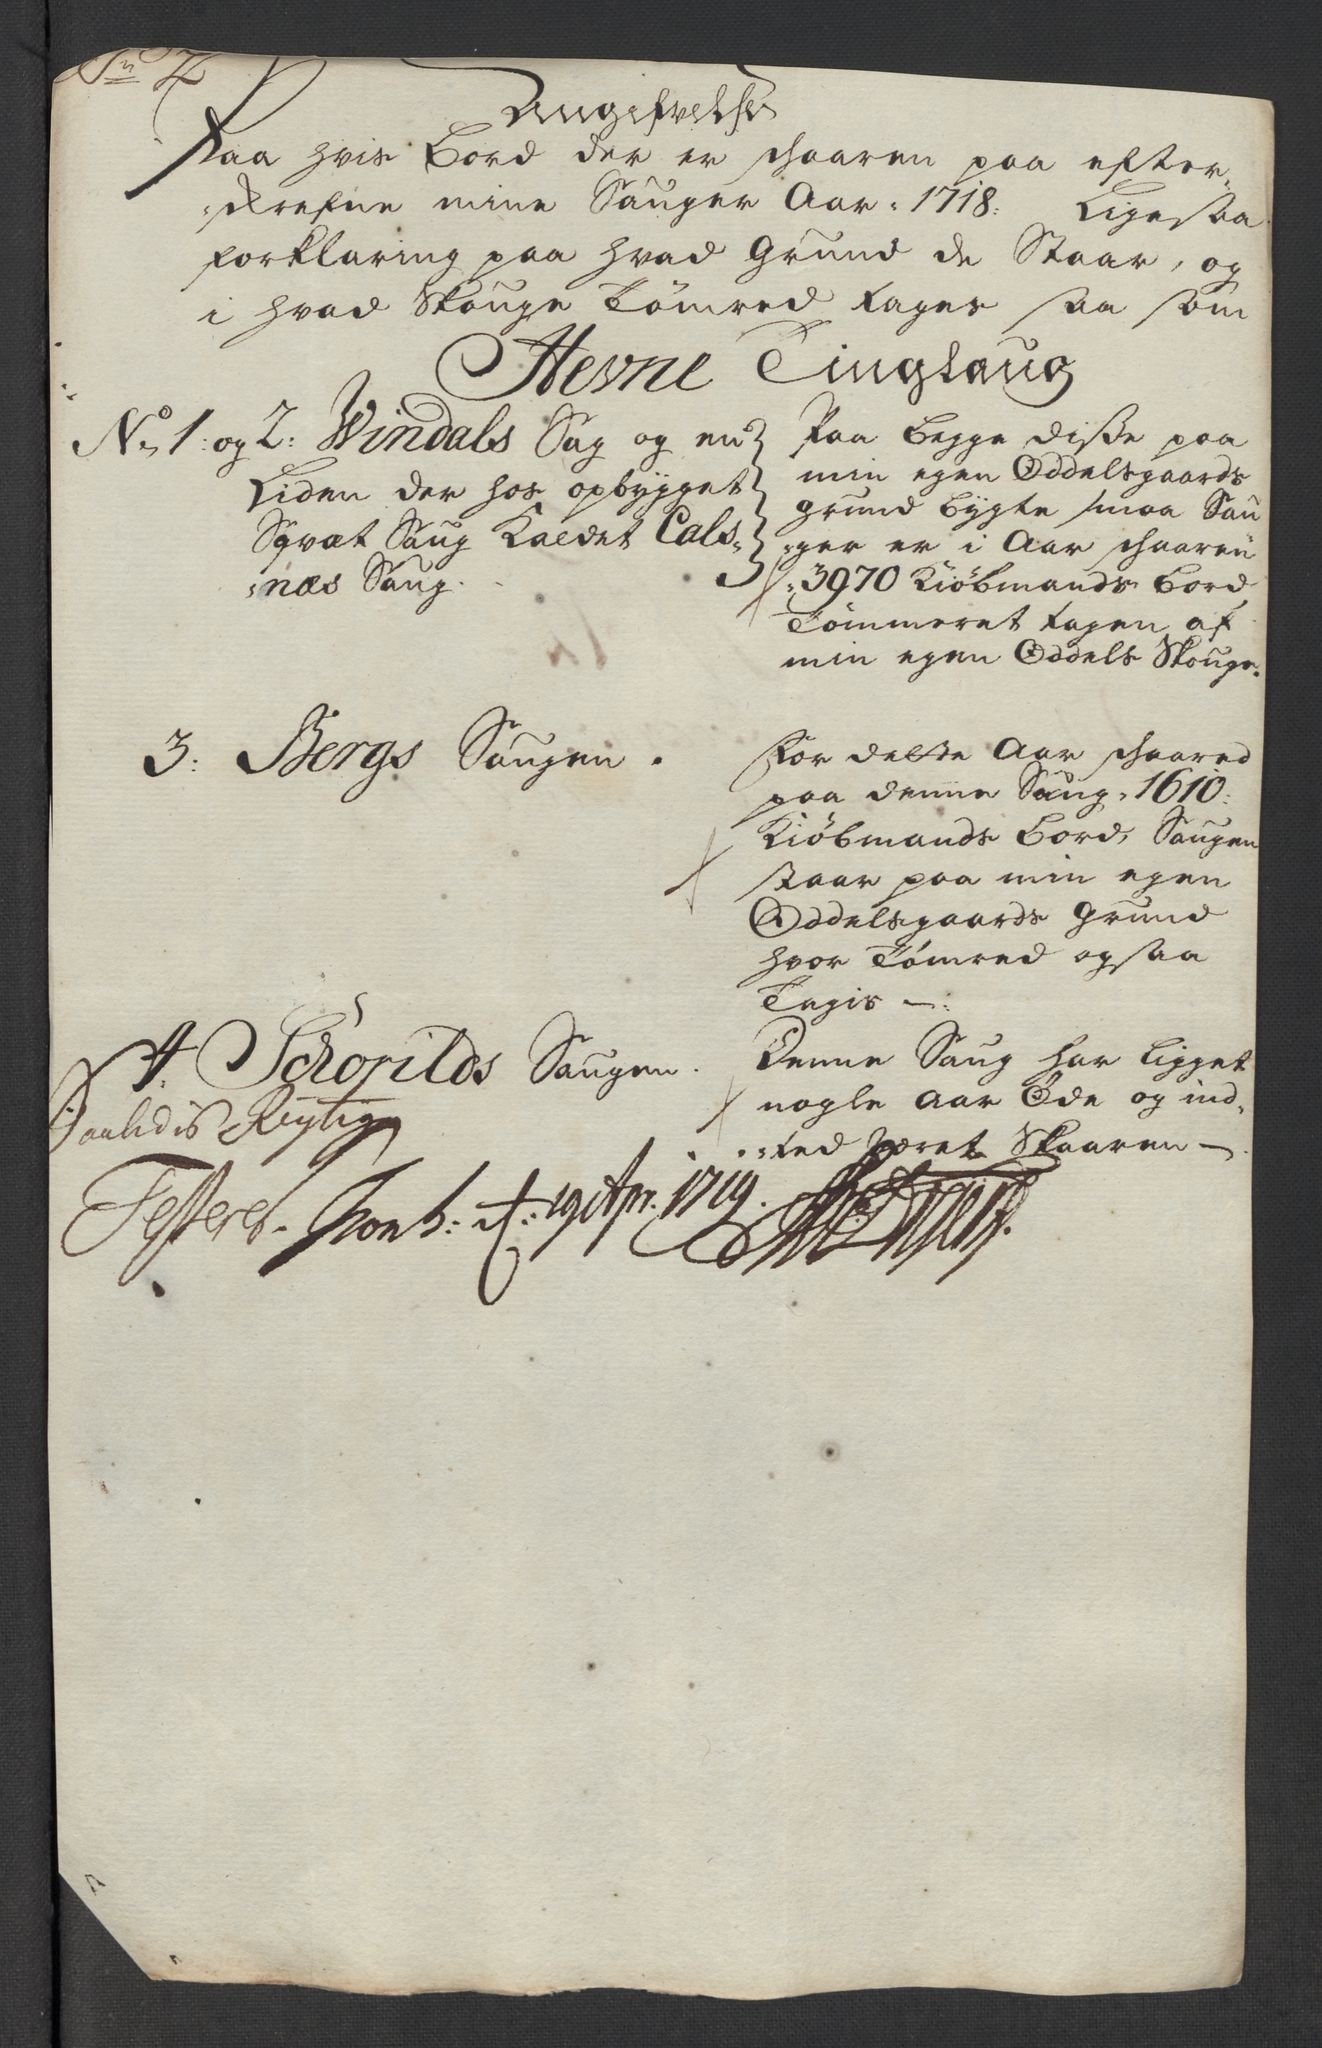 Nr 2
Angifvelse
Paa hvis Bord der er schaaren paa efter„
„skrefne mine Sauger Aar „1718: Ligesaa
forklaring paa hvad Grund de Staar, og
i hvad Skouge Tömred tages saa som
Hevne Tinglaug
No 1: og 2: Windals Sag og en
Liden der hos opbygget
Sqvæt Saug Kaldet Cals„
„næs Saug.
Paa begge disse paa
min egen Oddelsgaards
grund bygte smaa Sau
„ger er i Aar schaaren
„3970 Kiöbmands Bord
Tömmeret tagen af
min egen Oddels Skouge.
3: Bergs Saugen.
For dette Aar schaared
paa denne Saug „1610:
Kiöbmands Bord, Saugen
staar paa min egen
Oddelsgaards Grund
hvor Tömred ogsaa
Tagis —:
4: Saugen.
Denne Saug har ligget
nogle Aar Öde og ind„
„ted været Skaaren —
Saaledis Rigtig
Testerer. Tronh: d: 19 Apr: 1719.